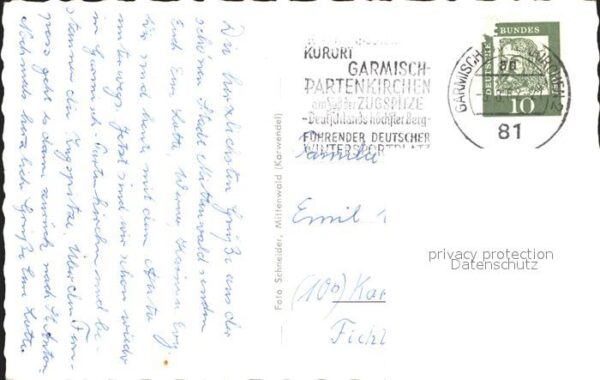 Die herzlichsten Grüße aus der
schönen Stadt Mittenwald senden
Euch Eure Lotte, Werner,
Wir sind heute mit dem Auto
unterwegs. Jetzt sind wir schon wieder
in Garmisch-Partenkirchen und be-
staunen die Zugspitze. Über den Fern-
pass geht es dann zurück nach St. Anton
Nochmals herzliche Grüße Eure Lotte
Foto Schneider, Mittenwald (Karwendel)
KURORT
GARMISCH-
PARTENKIRCHEN
am Fuß der ZUGSPITZE
-Deutschlands höchster Berg-
FÜHRENDER DEUTSCHER
WINTERSPORTPLATZ
GARMISCH-PARTENKIRCHEN
81
DEUTSCHE BUNDESPOST
10
Familie
Emil
(10b)
privacy protection
Datenschutz